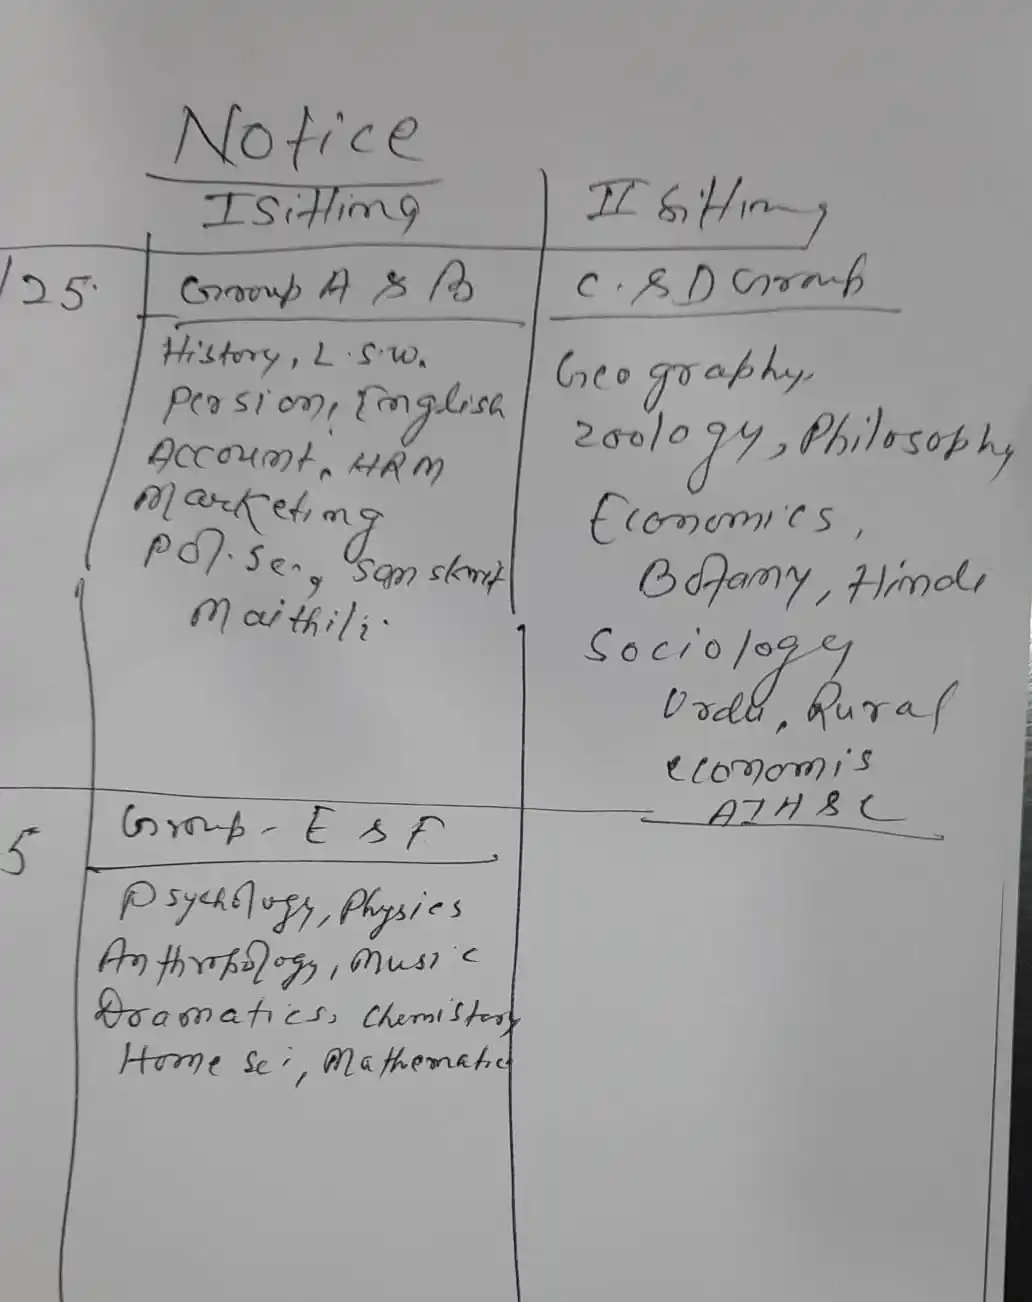 Notice
I Sitting
II Sitting
/25.
Group A & B
History, L.S.W.
Persion, English
Account, HRM
Marketing
Pol. Sc., Sanskrit
Maithili.
C. & D Group
Geography,
Zoology, Philosophy
Economics,
Botany, Hindi
Sociology
Urdu, Rural
economis
AIH & C
5
Group - E & F
Psychology, Physics
Anthropology, Music
Dramatics, Chemistory
Home Sci, Mathematics